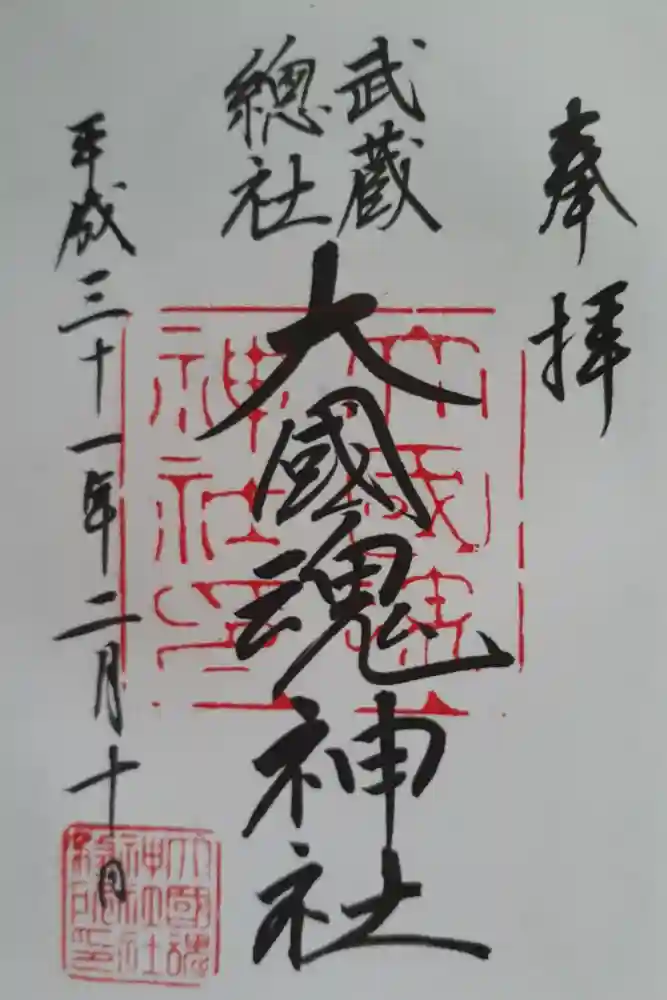 奉拝
武蔵
總社
大國魂神社
平成三十一年二月十日